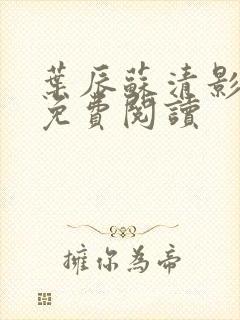 葉辰蘇清影
免費閱讀
擁你為帝